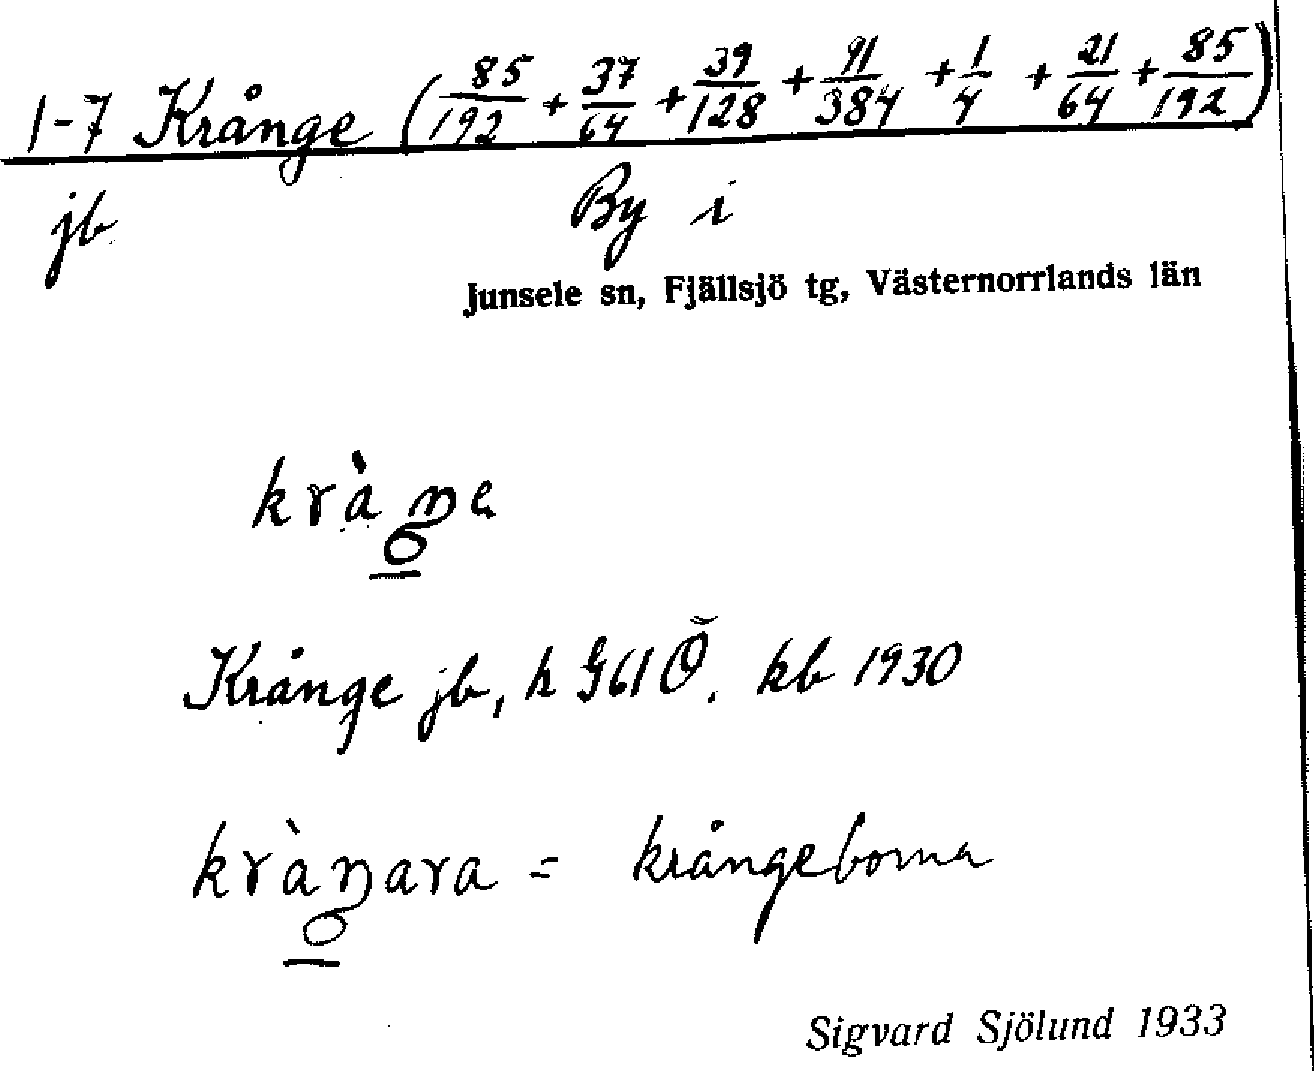 1-7 Krånge (85/192 + 37/64 + 39/128 + 91/384 + 1/4 + 21/64 + 85/192)
jb By i
Junsele sn, Fjällsjö tg, Västernorrlands län
kràŋe
Krånge jb, k 1930
kràŋara = krångeborna
Sigvard Sjölund 1933